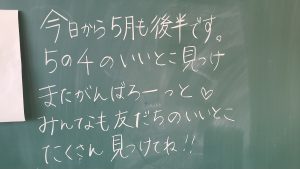 今日から5月も後半です。
5の4のいいとこ見つけ
またがんばろーっと♡
みんなも友だちのいいとこ
たくさん見つけてね!!